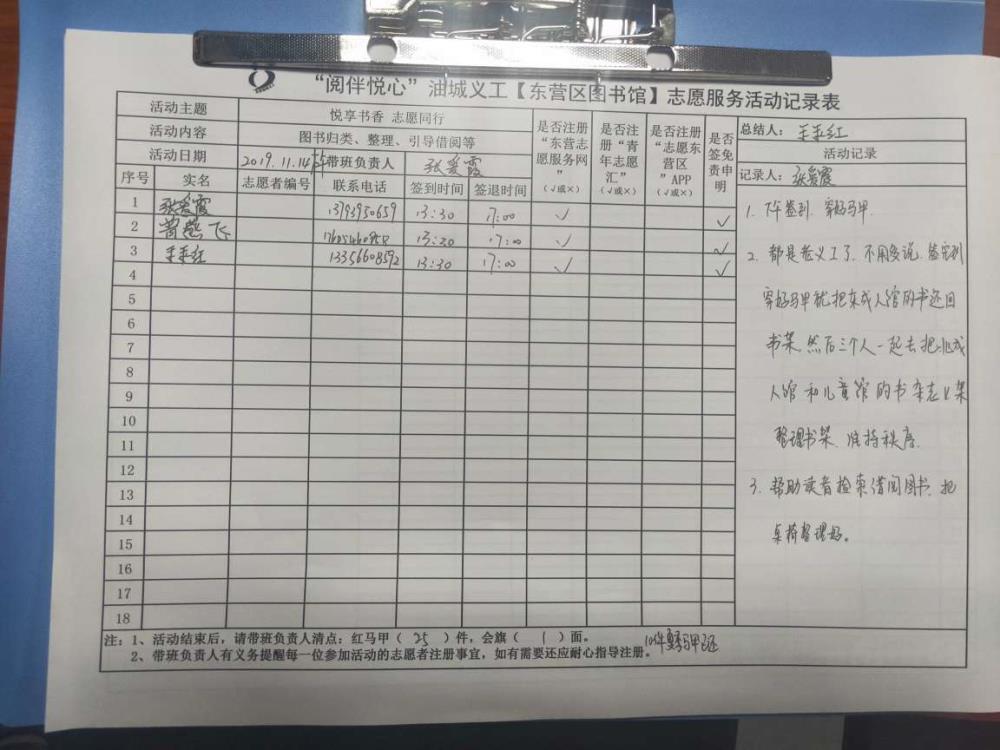 “阅伴悦心”油城义工【东营区图书馆】志愿服务活动记录表
活动主题 悦享书香 志愿同行
活动内容 图书归类、整理、引导借阅等
活动日期 2019.11.14 带班负责人 张爱霞
序号 实名 志愿者编号 联系电话 签到时间 签退时间 是否注册“东营志愿服务网” (√或×) 是否注册“青年志愿汇” (√或×) 是否注册“志愿东营区”APP (√或×) 是否签免责申明
1 张爱霞 13793950659 13:30 17:00 √ √
2 飞 13:30 17:00 √ √
3 13356608592 13:30 17:00 √ √
4
5
6
7
8
9
10
11
12
13
14
15
16
17
18
总结人：
活动记录
记录人：张爱霞
1. 下午签到、穿好马甲.
2. 都是老义工了、不用多说、签完到
穿好马甲就把东成人馆的书还回
书架.然后三个人一起去把北成
人馆和儿童馆的书杂志上架
整理书架、维持秩序.
3. 帮助读者检索借阅图书、把
桌椅整理好。
注：1、活动结束后，请带班负责人清点：红马甲（ 25 ）件，会旗（ 1 ）面。
2、带班负责人有义务提醒每一位参加活动的志愿者注册事宜，如有需要还应耐心指导注册。